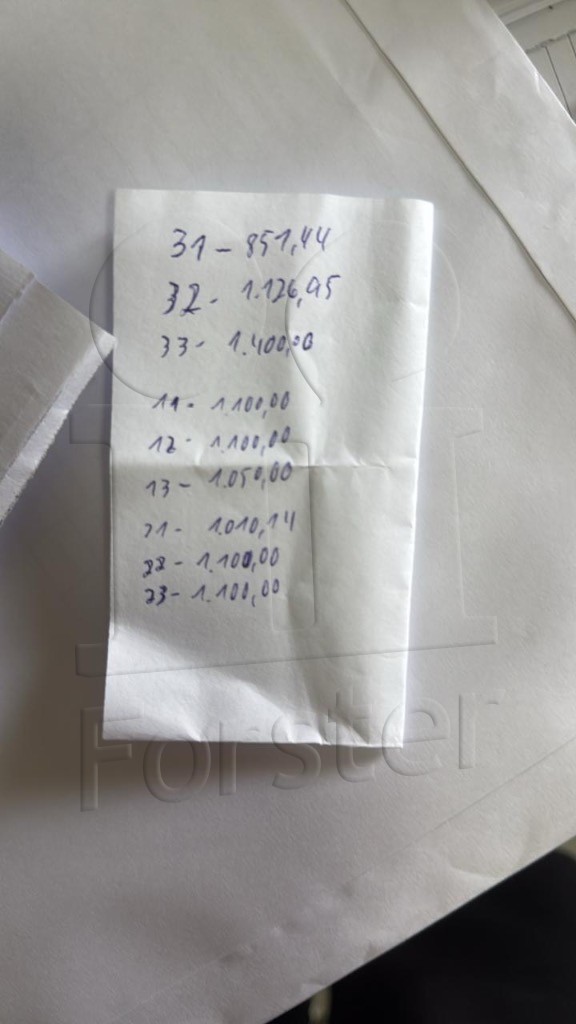 31 - 851,44
32 - 1.126,95
33 - 1.400,00
11 - 1.100,00
12 - 1.100,00
13 - 1.050,00
21 - 1.010,14
22 - 1.100,00
23 - 1.100,00
Forster